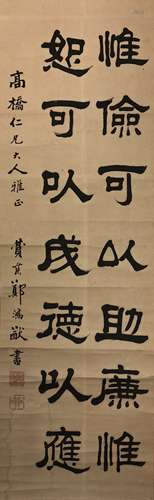 惟儉可以助廉惟
恕可以成德以應
高橋仁兄大人雅正
鄭鴻猷書